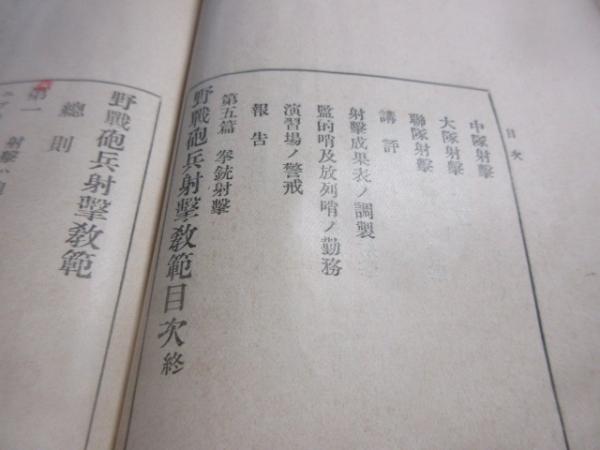 目次
中隊射擊
大隊射擊
聯隊射擊
講評
射擊成果表ノ調製
監的哨及放列哨ノ勤務
演習場ノ警戒
報告
第五篇 拳銃射擊
野戰砲兵射擊敎範目次終
野戰砲兵射擊敎範
總則
第一 射擊ハ